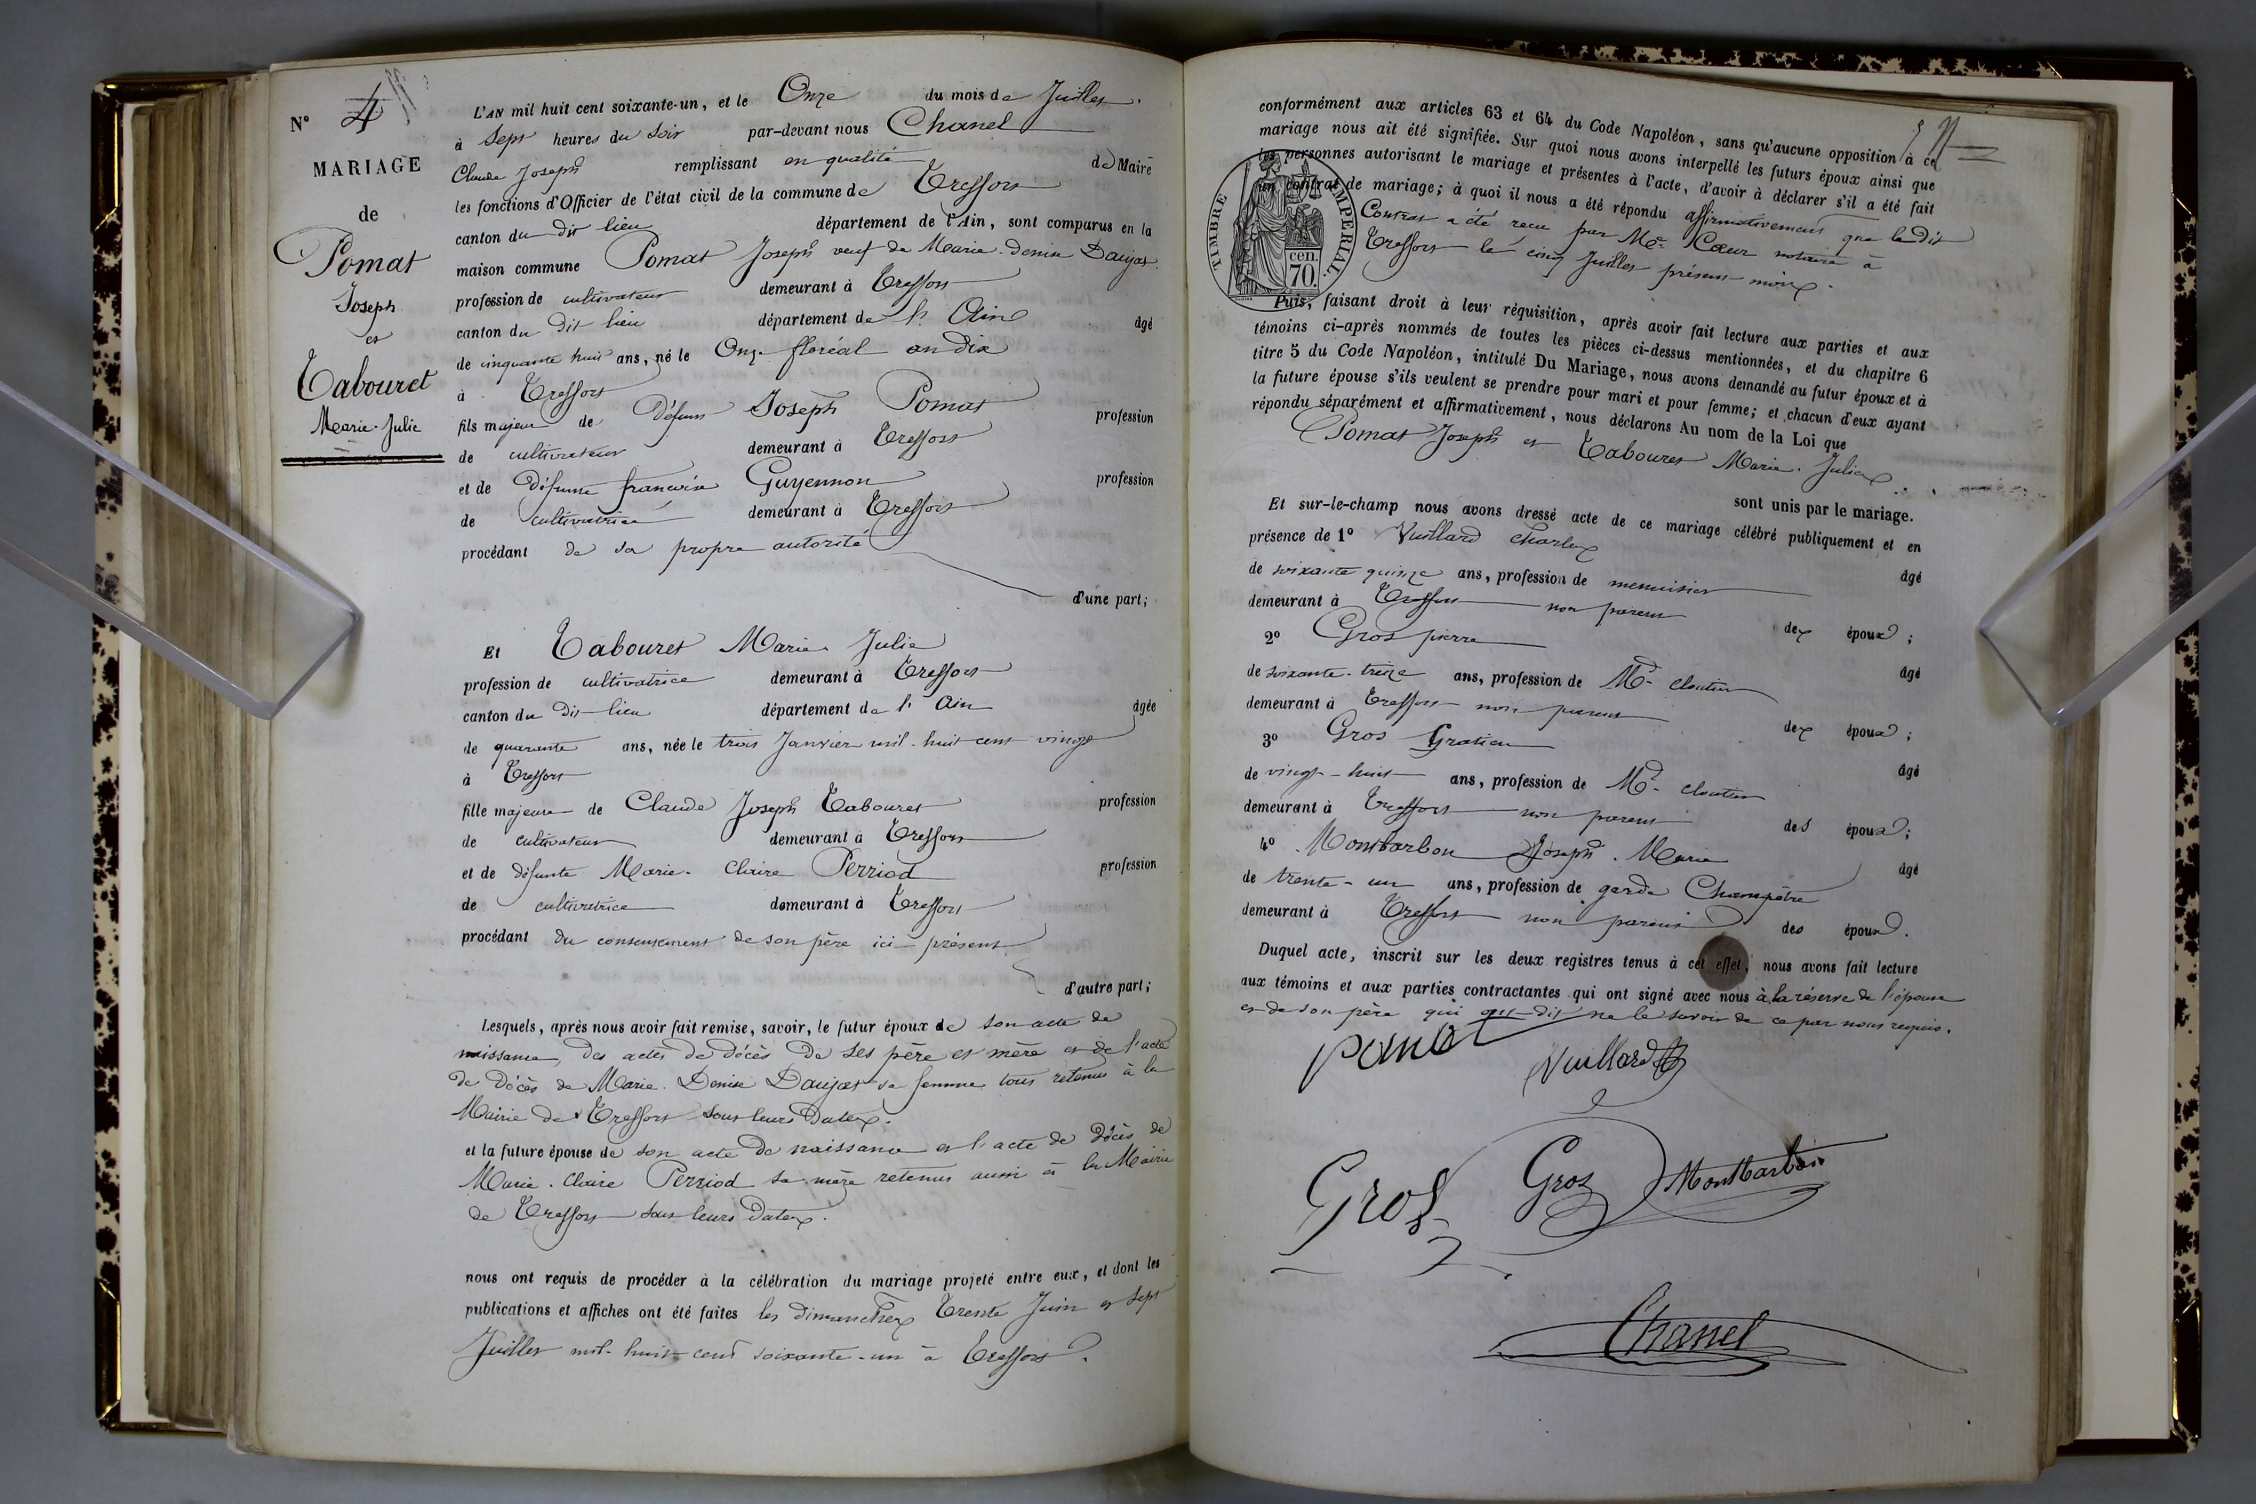 N° 4
MARIAGE
de
Pomat
Joseph
et
Tabouret
Marie-Julie
L'AN mil huit cent soixante-un, et le Onze du mois de Juillet.
à Sept heures du soir par-devant nous Chanel
Claude Joseph remplissant en qualité de Maire
les fonctions d'Officier de l'état civil de la commune de Treffort
canton du dit lieu département de l'Ain, sont comparus en la
maison commune Pomat Joseph veuf de Marie-Denise Daujat
profession de cultivateur demeurant à Treffort
canton du Dit lieu département de l'Ain âgé
de cinquante huit ans, né le Onze floréal an dix
à Treffort
fils majeur de Défunt Joseph Pomat profession
de cultivateur demeurant à Treffort
et de Défunte françoise Guyennon profession
de cultivatrice demeurant à Treffort
procédant de sa propre autorité
d'une part;
Et Tabouret Marie-Julie
profession de cultivatrice demeurant à Treffort
canton du Dit-lieu département de l'Ain âgée
de quarante ans, née le trois Janvier mil-huit cent vingt
à Treffort
fille majeure de Claude Joseph Tabouret profession
de cultivateur demeurant à Treffort
et de défunte Marie-Claire Perriod profession
de cultivatrice demeurant à Treffort
procédant du consentement de son père ici présent
d'autre part;
Lesquels, après nous avoir fait remise, savoir, le futur époux de son acte de
naissance, des actes de décès de ses père et mère et de l'acte
de décès de Marie-Denise Daujat sa femme tous retenus à la
Mairie de Treffort sous leurs dates.
et la future épouse de son acte de naissance et l'acte de décès de
Marie-Claire Perriod sa mère retenus aussi à la Mairie
de Treffort sous leurs dates.
nous ont requis de procéder à la célébration du mariage projeté entre eux, et dont les
publications et affiches ont été faites les dimanches Trente Juin et sept
Juillet mil-huit-cent soixante-un à Treffort.
conformément aux articles 63 et 64 du Code Napoléon, sans qu'aucune opposition à ce
mariage nous ait été signifiée. Sur quoi nous avons interpellé les futurs époux ainsi que
les personnes autorisant le mariage et présentes à l'acte, d'avoir à déclarer s'il a été fait
un contrat de mariage; à quoi il nous a été répondu affirmativement que le dit
Contrat a été reçu par Me. Cœur notaire à
Treffort le cinq Juillet présent mois.
TIMBRE IMPÉRIAL.
cen.
70.
Puis, faisant droit à leur réquisition, après avoir fait lecture aux parties et aux
témoins ci-après nommés de toutes les pièces ci-dessus mentionnées, et du chapitre 6
titre 5 du Code Napoléon, intitulé Du Mariage, nous avons demandé au futur époux et à
la future épouse s'ils veulent se prendre pour mari et pour femme; et chacun d'eux ayant
répondu séparément et affirmativement, nous déclarons Au nom de la Loi que
Pomat Joseph et Tabouret Marie-Julie
sont unis par le mariage.
Et sur-le-champ nous avons dressé acte de ce mariage célébré publiquement et en
présence de 1° Vuillard Charles âgé
de soixante quinze ans, profession de menuisier
demeurant à Treffort non parent des époux;
2° Gros pierre âgé
de soixante-treize ans, profession de Md. cloutier
demeurant à Treffort non parent des époux;
3° Gros Gratien âgé
de vingt-huit ans, profession de Md. cloutier
demeurant à Treffort non parent des époux;
4° Montbarbon Joseph-Marie âgé
de trente-un ans, profession de garde Champêtre
demeurant à Treffort non parent des époux.
Duquel acte, inscrit sur les deux registres tenus à cet effet, nous avons fait lecture
aux témoins et aux parties contractantes qui ont signé avec nous à la réserve de l'épouse
et de son père qui ont dit ne le savoir de ce par nous requis.
pomat Vuillard
Gros Gros Montbarbon
Chanel